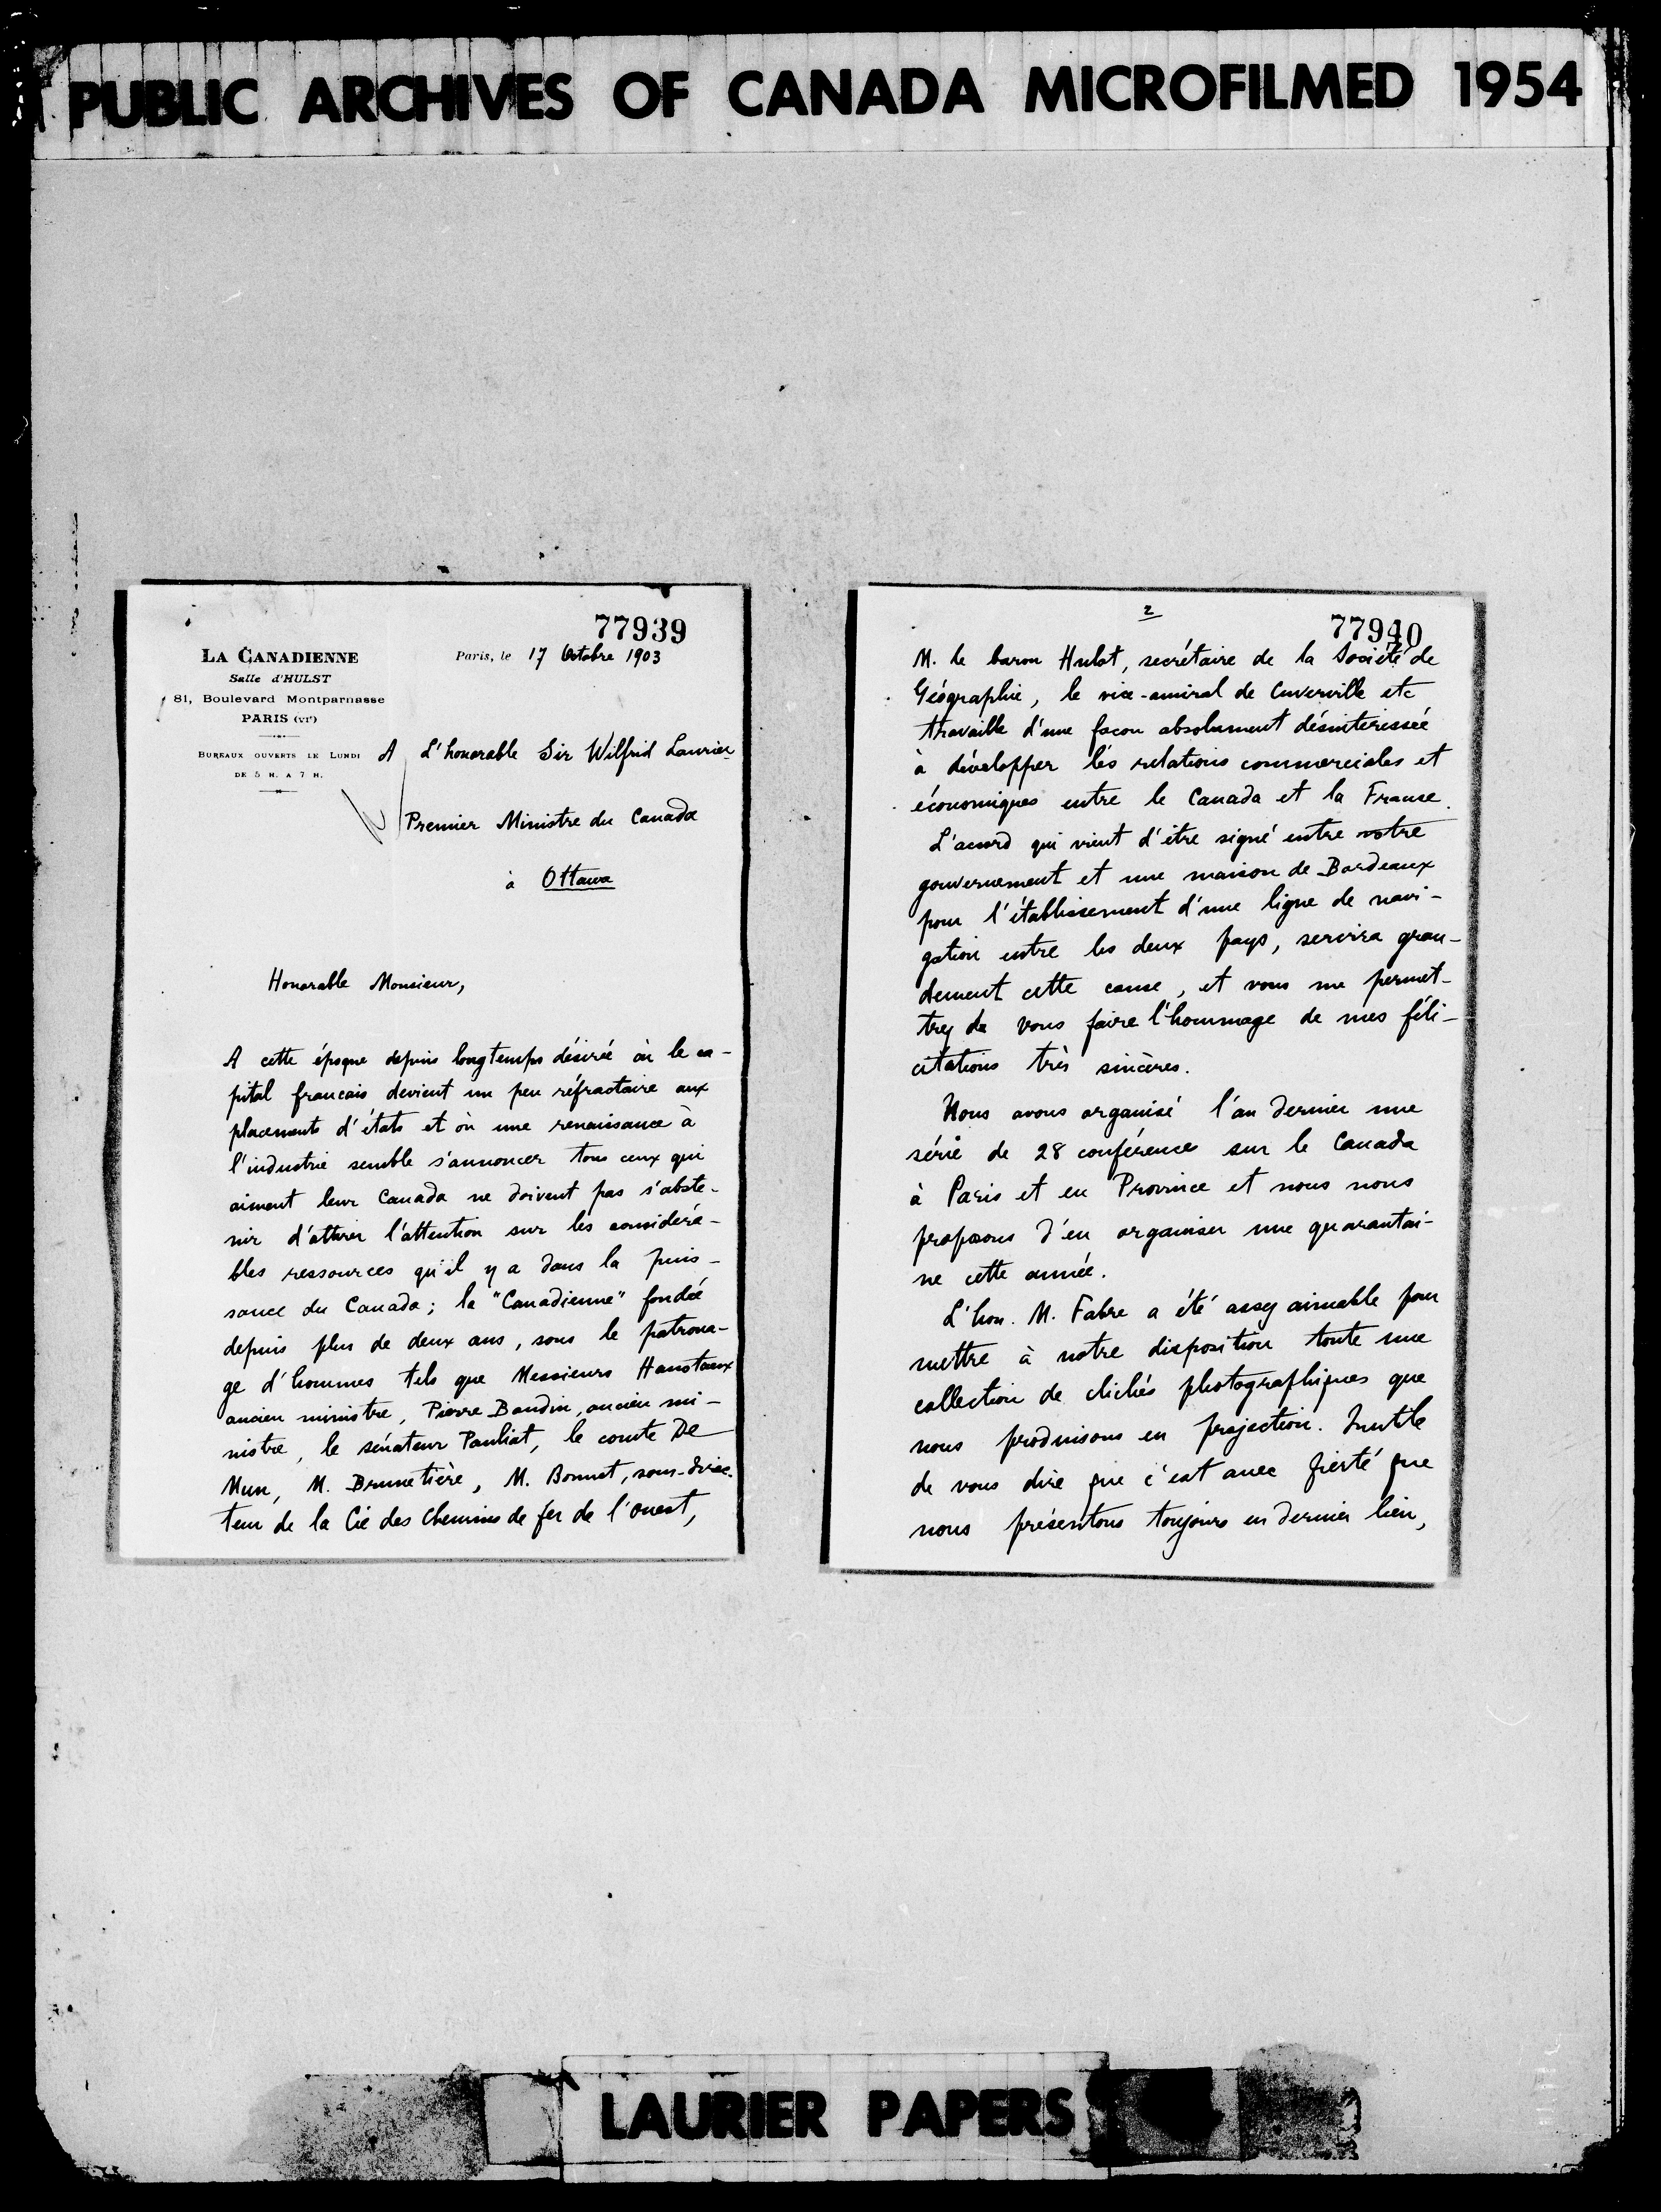 PUBLIC ARCHIVES OF CANADA MICROFILMED 1954
77939
LA CANADIENNE
Salle d'HULST
81, Boulevard Montparnasse
PARIS (VIe)
BUREAUX OUVERTS LE LUNDI
DE 5 H. A 7 H.
Paris, le 17 Octobre 1903
A L'honorable Sir Wilfrid Laurier
Premier Ministre du Canada
à Ottawa
Honorable Monsieur,
A cette époque depuis longtemps désirée où le ca-
pital francais devient un peu réfractaire aux
placements d'états et où une renaissance à
l'industrie semble s'annoncer tous ceux qui
aiment leur Canada ne doivent pas s'abste-
nir d'attirer l'attention sur les considéra-
bles ressources qu'il y a dans la puis-
sance du Canada; la "Canadienne" fondée
depuis plus de deux ans, sous le patrona-
ge d'hommes tels que Messieurs Hanotaux
ancien ministre, Pierre Baudin, ancien mi-
nistre, le sénateur Pauliat, le comte De
Mun, M. Brunetière, M. Bonnet, sous-direc-
teur de la Cie des Chemins de fer de l'ouest,
2
77940
M. le baron Hulot, secrétaire de la Société de
Géographie, le vice-amiral de Cuverville etc
travaille d'une facon absolument désintéressée
à développer les relations commerciales et
économiques entre le Canada et la France.
L'accord qui vient d'être signé entre votre
gouvernement et une maison de Bordeaux
pour l'établissement d'une ligne de navi-
gation entre les deux pays, servira gran-
dement cette cause, et vous me permet-
trez de vous faire l'hommage de mes féli-
citations très sincères.
Nous avons organisé l'an dernier une
série de 28 conférences sur le Canada
à Paris et en Province et nous nous
proposons d'en organiser une quarantai-
ne cette année.
L'hon. M. Fabre a été assez aimable pour
mettre à notre disposition toute une
collection de clichés photographiques que
nous produisons en projection. Inutile
de vous dire que c'est avec fierté que
nous présentons toujours en dernier lieu,
LAURIER PAPERS